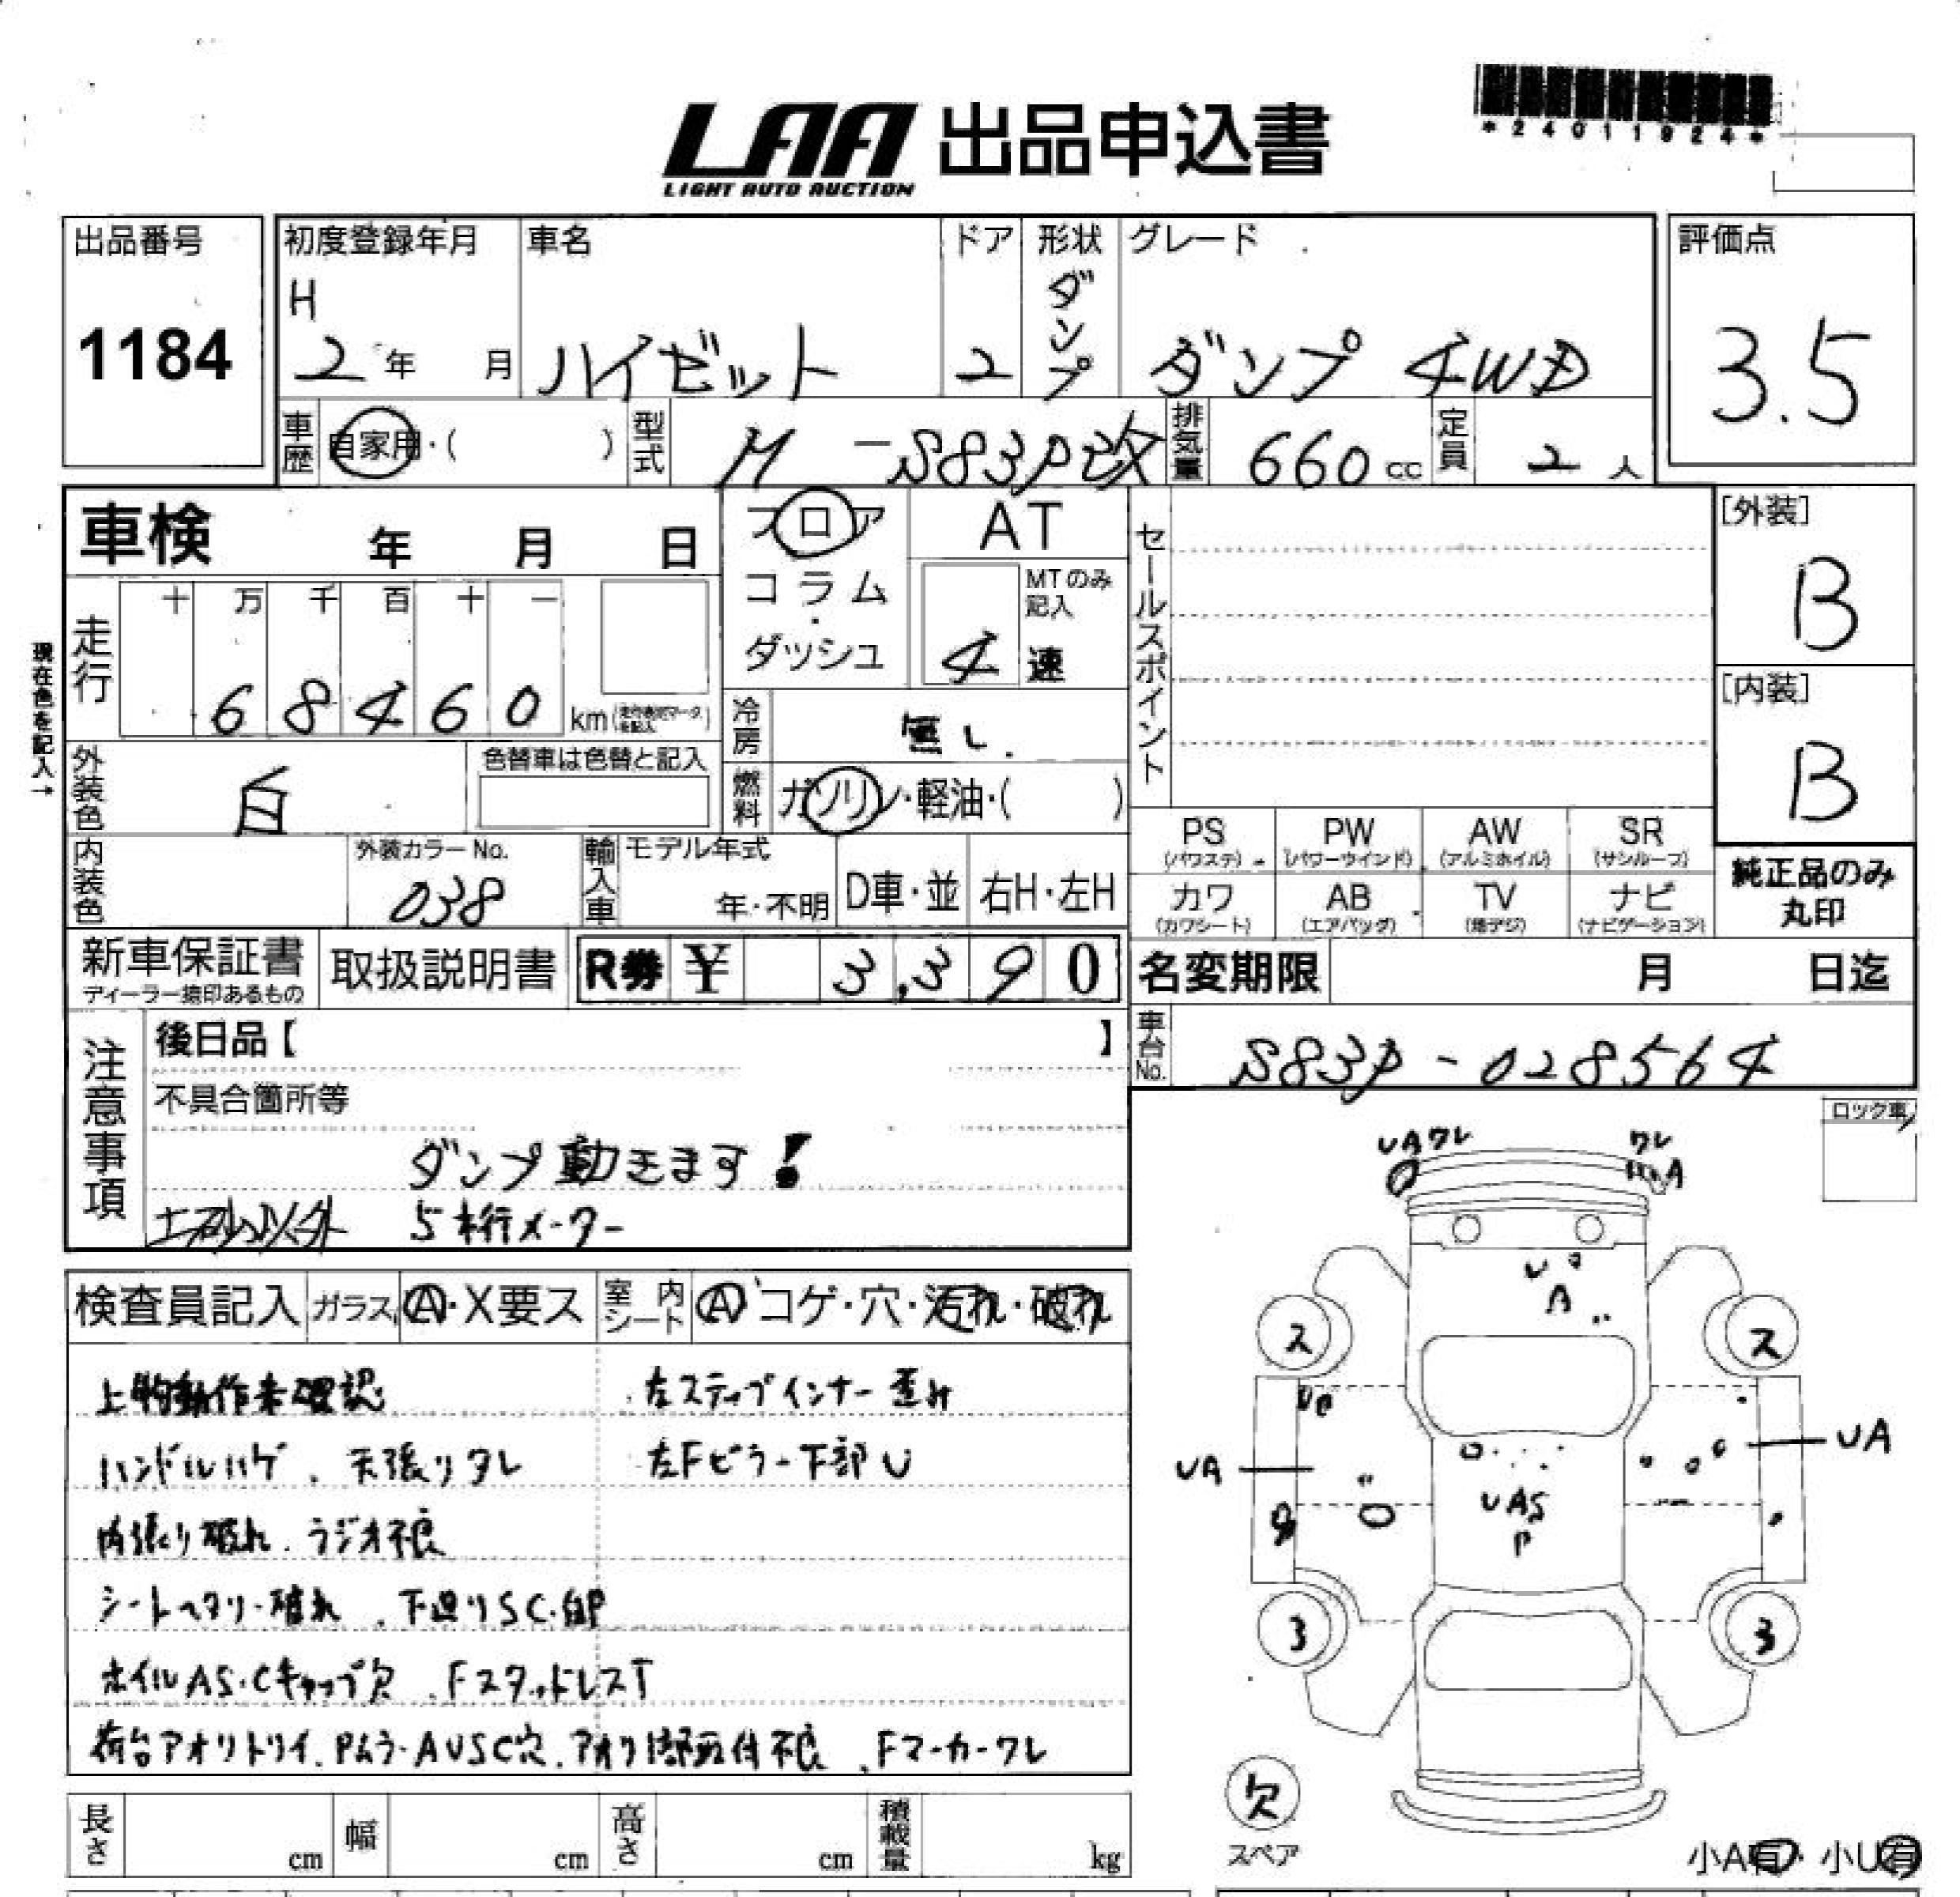 LAA 出品申込書
LIGHT AUTO AUCTION
*24011924*
出品番号
1184
初度登録年月
H
2 年 月
車名
ハイゼット
ドア
2
形状
ダンプ
グレード
ダンプ 4WD
評価点
3.5
車歴
自家用・( )
型式
M-S83P改
排気量
660 cc
定員
2 人
車検 年 月 日
フロア
コラム
・
ダッシュ
AT
MTのみ
記入
4 速
セールスポイント
[外装]
B
[内装]
B
現在色を記入→
走行
十 万 千 百 十 一
6 8 4 6 0 km
冷房
無し.
外装色
白
色替車は色替と記入
燃料
ガソリン・軽油・( )
内装色
外装カラーNo.
038
輸入車
モデル年式
年・不明
D車・並
右H・左H
PS
(パワステ)
PW
(パワーウインド)
AW
(アルミホイル)
SR
(サンルーフ)
カワ
(カワシート)
AB
(エアバッグ)
TV
(地デジ)
ナビ
(ナビゲーション)
純正品のみ
丸印
新車保証書
ディーラー捺印あるもの
取扱説明書
R券 ¥ 3,390
名変期限 月 日迄
注意事項
後日品【 】
車台No.
S83P-028564
不具合箇所等
ダンプ動きます!
土砂以外 5桁メーター
ロック車
検査員記入 ガラス A・X要ス 室内シート A コゲ・穴・汚れ・破れ
上物動作未確認 左ステップインナー歪み
ハンドルハゲ、天張りタレ 左Fピラー下部U
内張り破れ、ラジオ不良
シートヘタリ・破れ、下廻りSC・錆
ホイルAS・Cキャップ欠、FスタッドレスT
荷台アオリトリイ、Pムラ・AUSC穴、アオリ 取付不良、Fマーカーワレ
UAワレ
ワレ
A
U
A
ス
ス
UA
UA
UAS
P
3
3
欠
スペア
小A有・小U有
長さ cm
幅 cm
高さ cm
積載量 kg